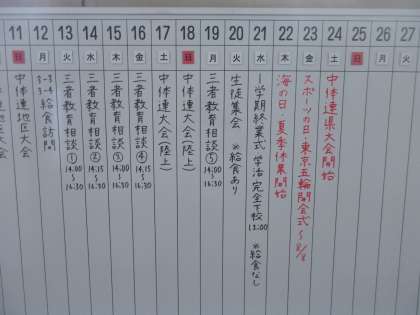 11 12 13 14 15 16 17 18 19 20 21 22 23 24 25 26 27
日 月 火 水 木 金 土 日 月 火 水 木 金 土 日 月 火
中体連地区大会
3-3
3-4 給食訪問
三者教育相談① 14:00〜16:30
三者教育相談② 14:15〜16:30
三者教育相談③ 14:00〜16:30
三者教育相談④ 14:15〜16:30
中体連大会(陸上)
中体連大会(陸上)
三者教育相談⑤ 14:00〜16:30
生徒集会 ※給食あり
1学期終業式 学活 完全下校 12:00 ※給食なし
海の日・夏季休業開始
スポーツの日・東京五輪開会式〜8/8
中体連県大会開始